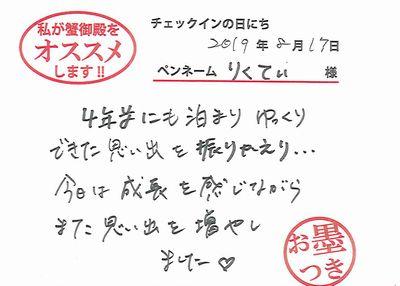 私が蟹御殿を
オススメ
します!!
チェックインの日にち
2019年8月17日
ペンネーム りくてぃ 様
4年前にも泊まり ゆっくり
できた思い出を振りかえり...
今日は成長を感じながら
また思い出を増やし
ました♡
お墨
つき